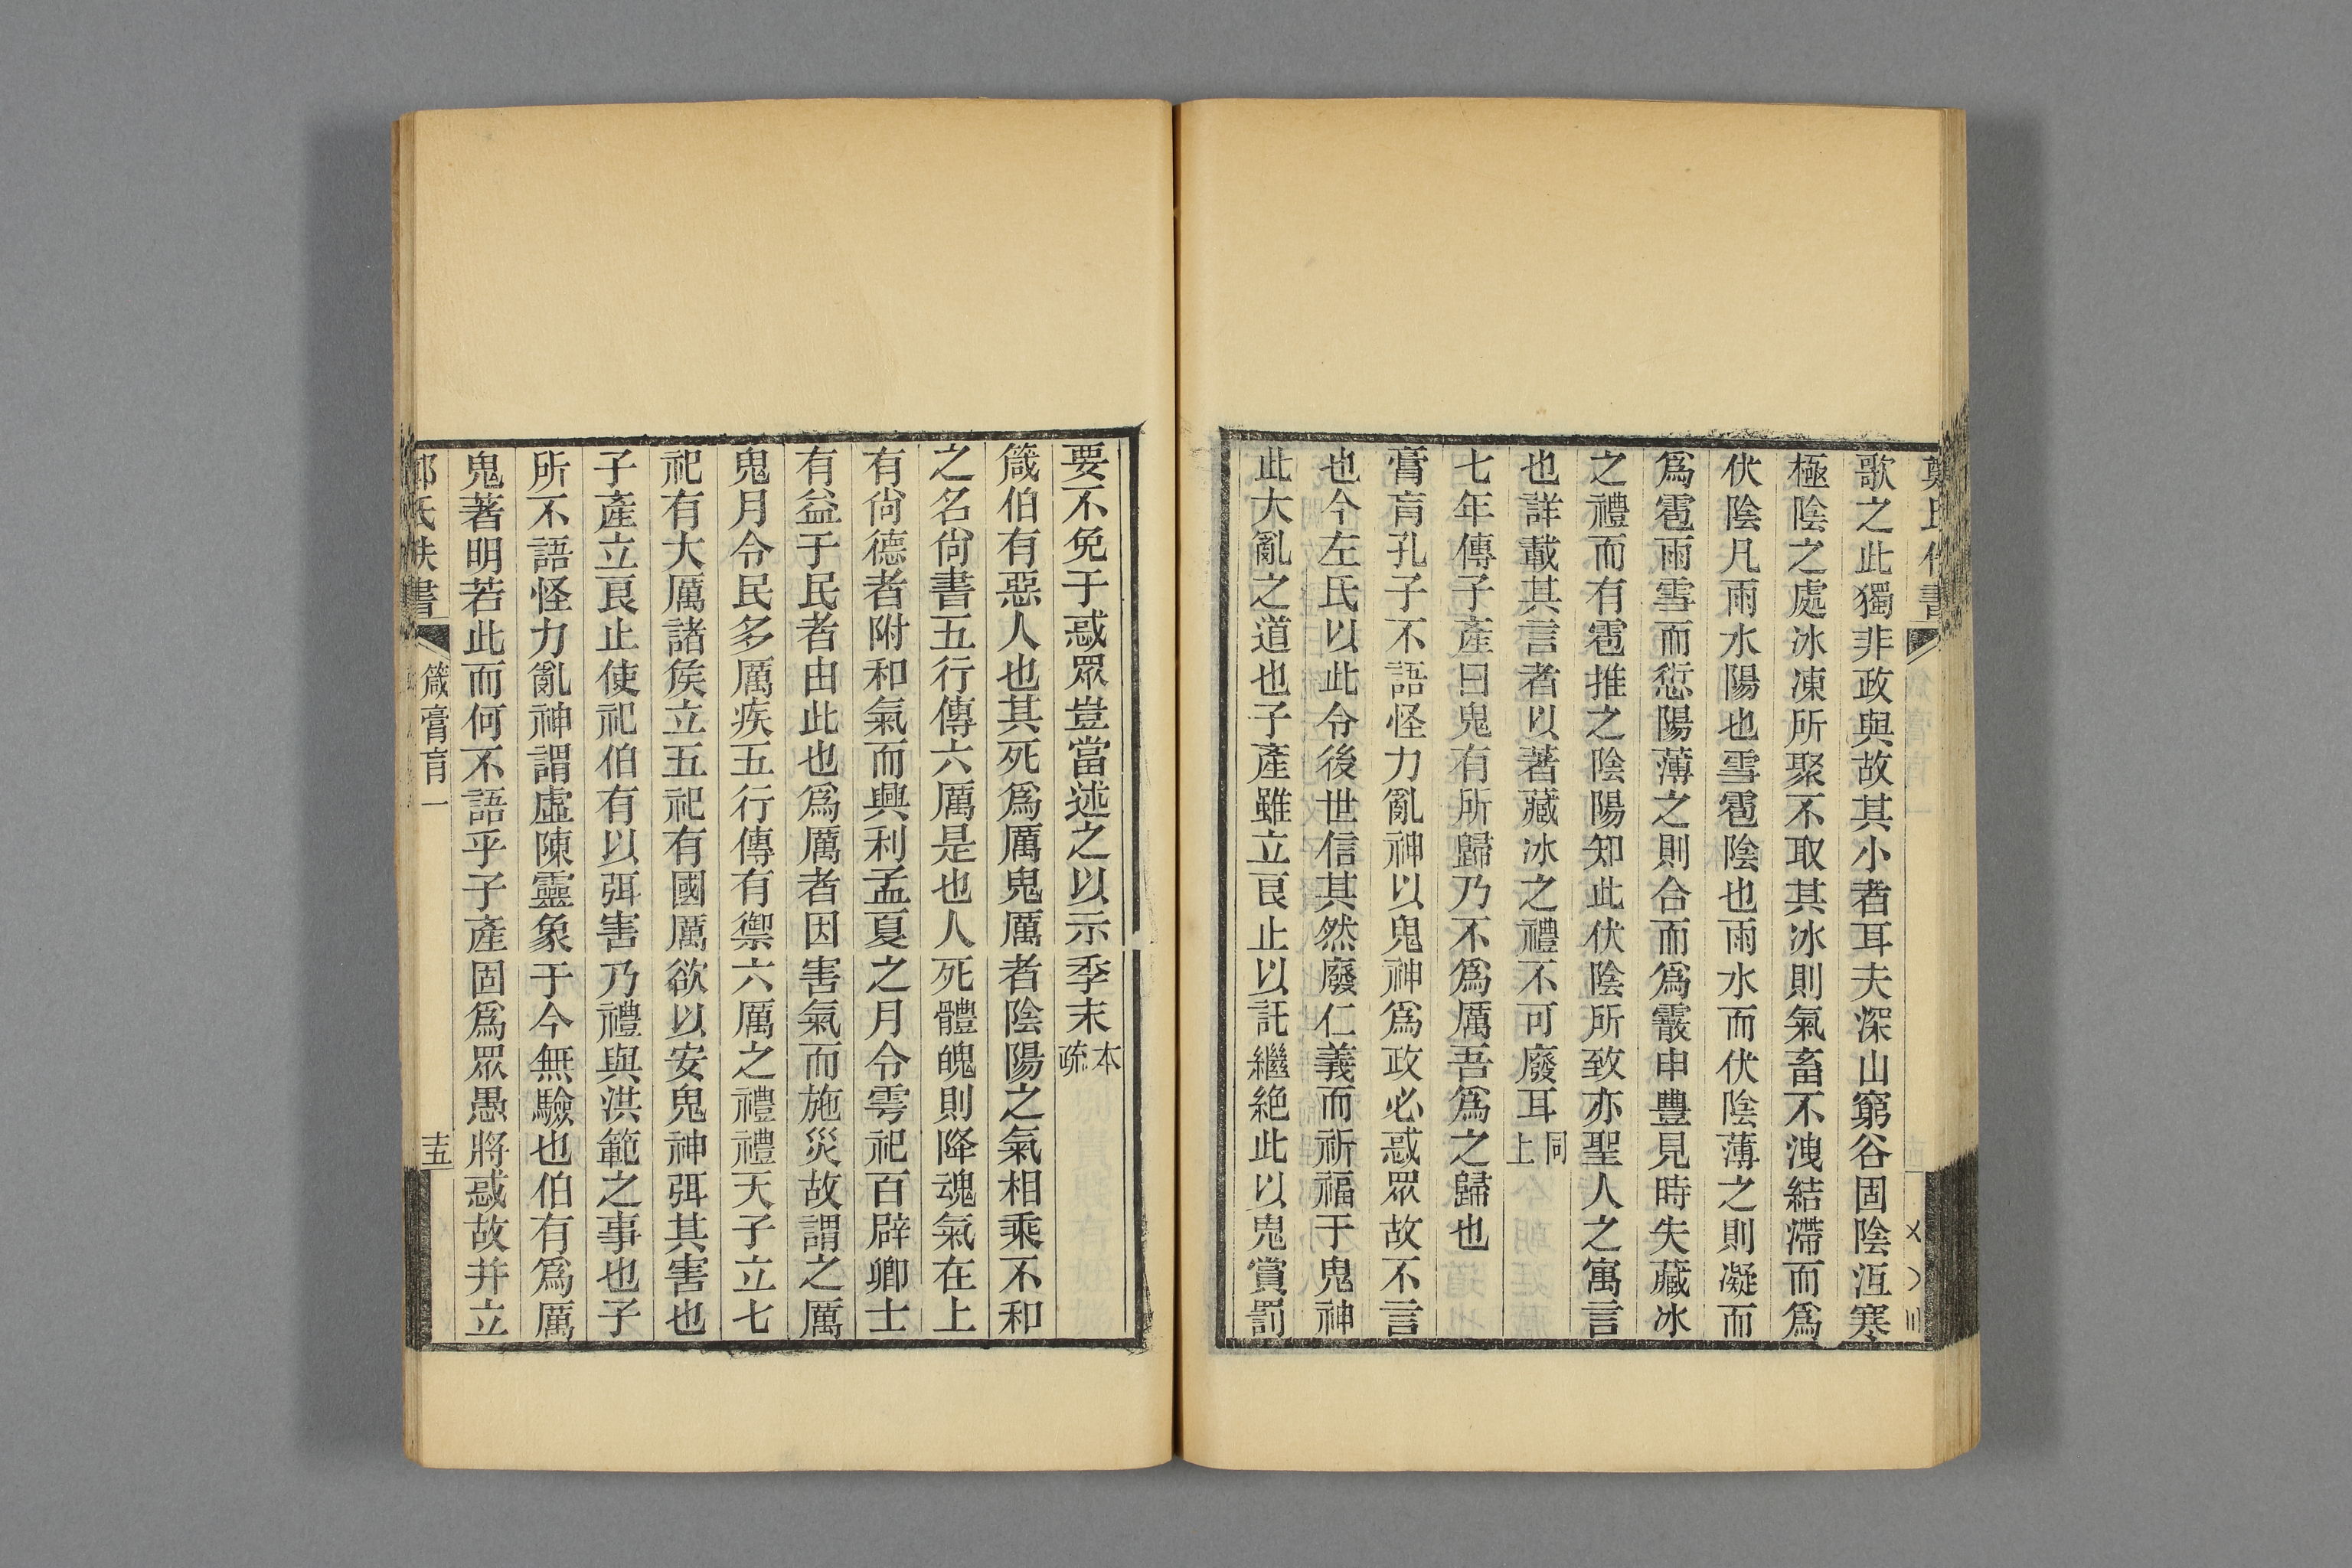 歌之此獨非政與故其小者耳夫深山窮谷固陰沍寒
極陰之處冰凍所聚不取其冰則氣畜不洩結滯而爲
伏陰凡雨水陽也雪雹陰也雨水而伏陰薄之則凝而
爲雹雨雪而愆陽薄之則合而爲霰申豐見時失藏冰
之禮而有雹推之陰陽知此伏陰所致亦聖人之寓言
也詳載其言者以著藏冰之禮不可廢耳同上
七年傳子產曰鬼有所歸乃不爲厲吾爲之歸也
膏肓孔子不語怪力亂神以鬼神爲政必惑眾故不言
也今左氏以此令後世信其然廢仁義而祈福于鬼神
此大亂之道也子產雖立良止以託繼絶此以鬼賞罰
要不免于惑眾豈當述之以示季末本疏
箴伯有惡人也其死爲厲鬼厲者陰陽之氣相乘不和
之名尙書五行傳六厲是也人死體魄則降魂氣在上
有尙德者附和氣而興利孟夏之月令雩祀百辟卿士
有益于民者由此也爲厲者因害氣而施災故謂之厲
鬼月令民多厲疾五行傳有禦六厲之禮禮天子立七
祀有大厲諸矦立五祀有國厲欲以安鬼神弭其害也
子產立良止使祀伯有以弭害乃禮與洪範之事也子
所不語怪力亂神謂虛陳靈象于今無驗也伯有爲厲
鬼著明若此而何不語乎子產固爲眾愚將惑故并立
氏佚書 箴膏肓一 十五